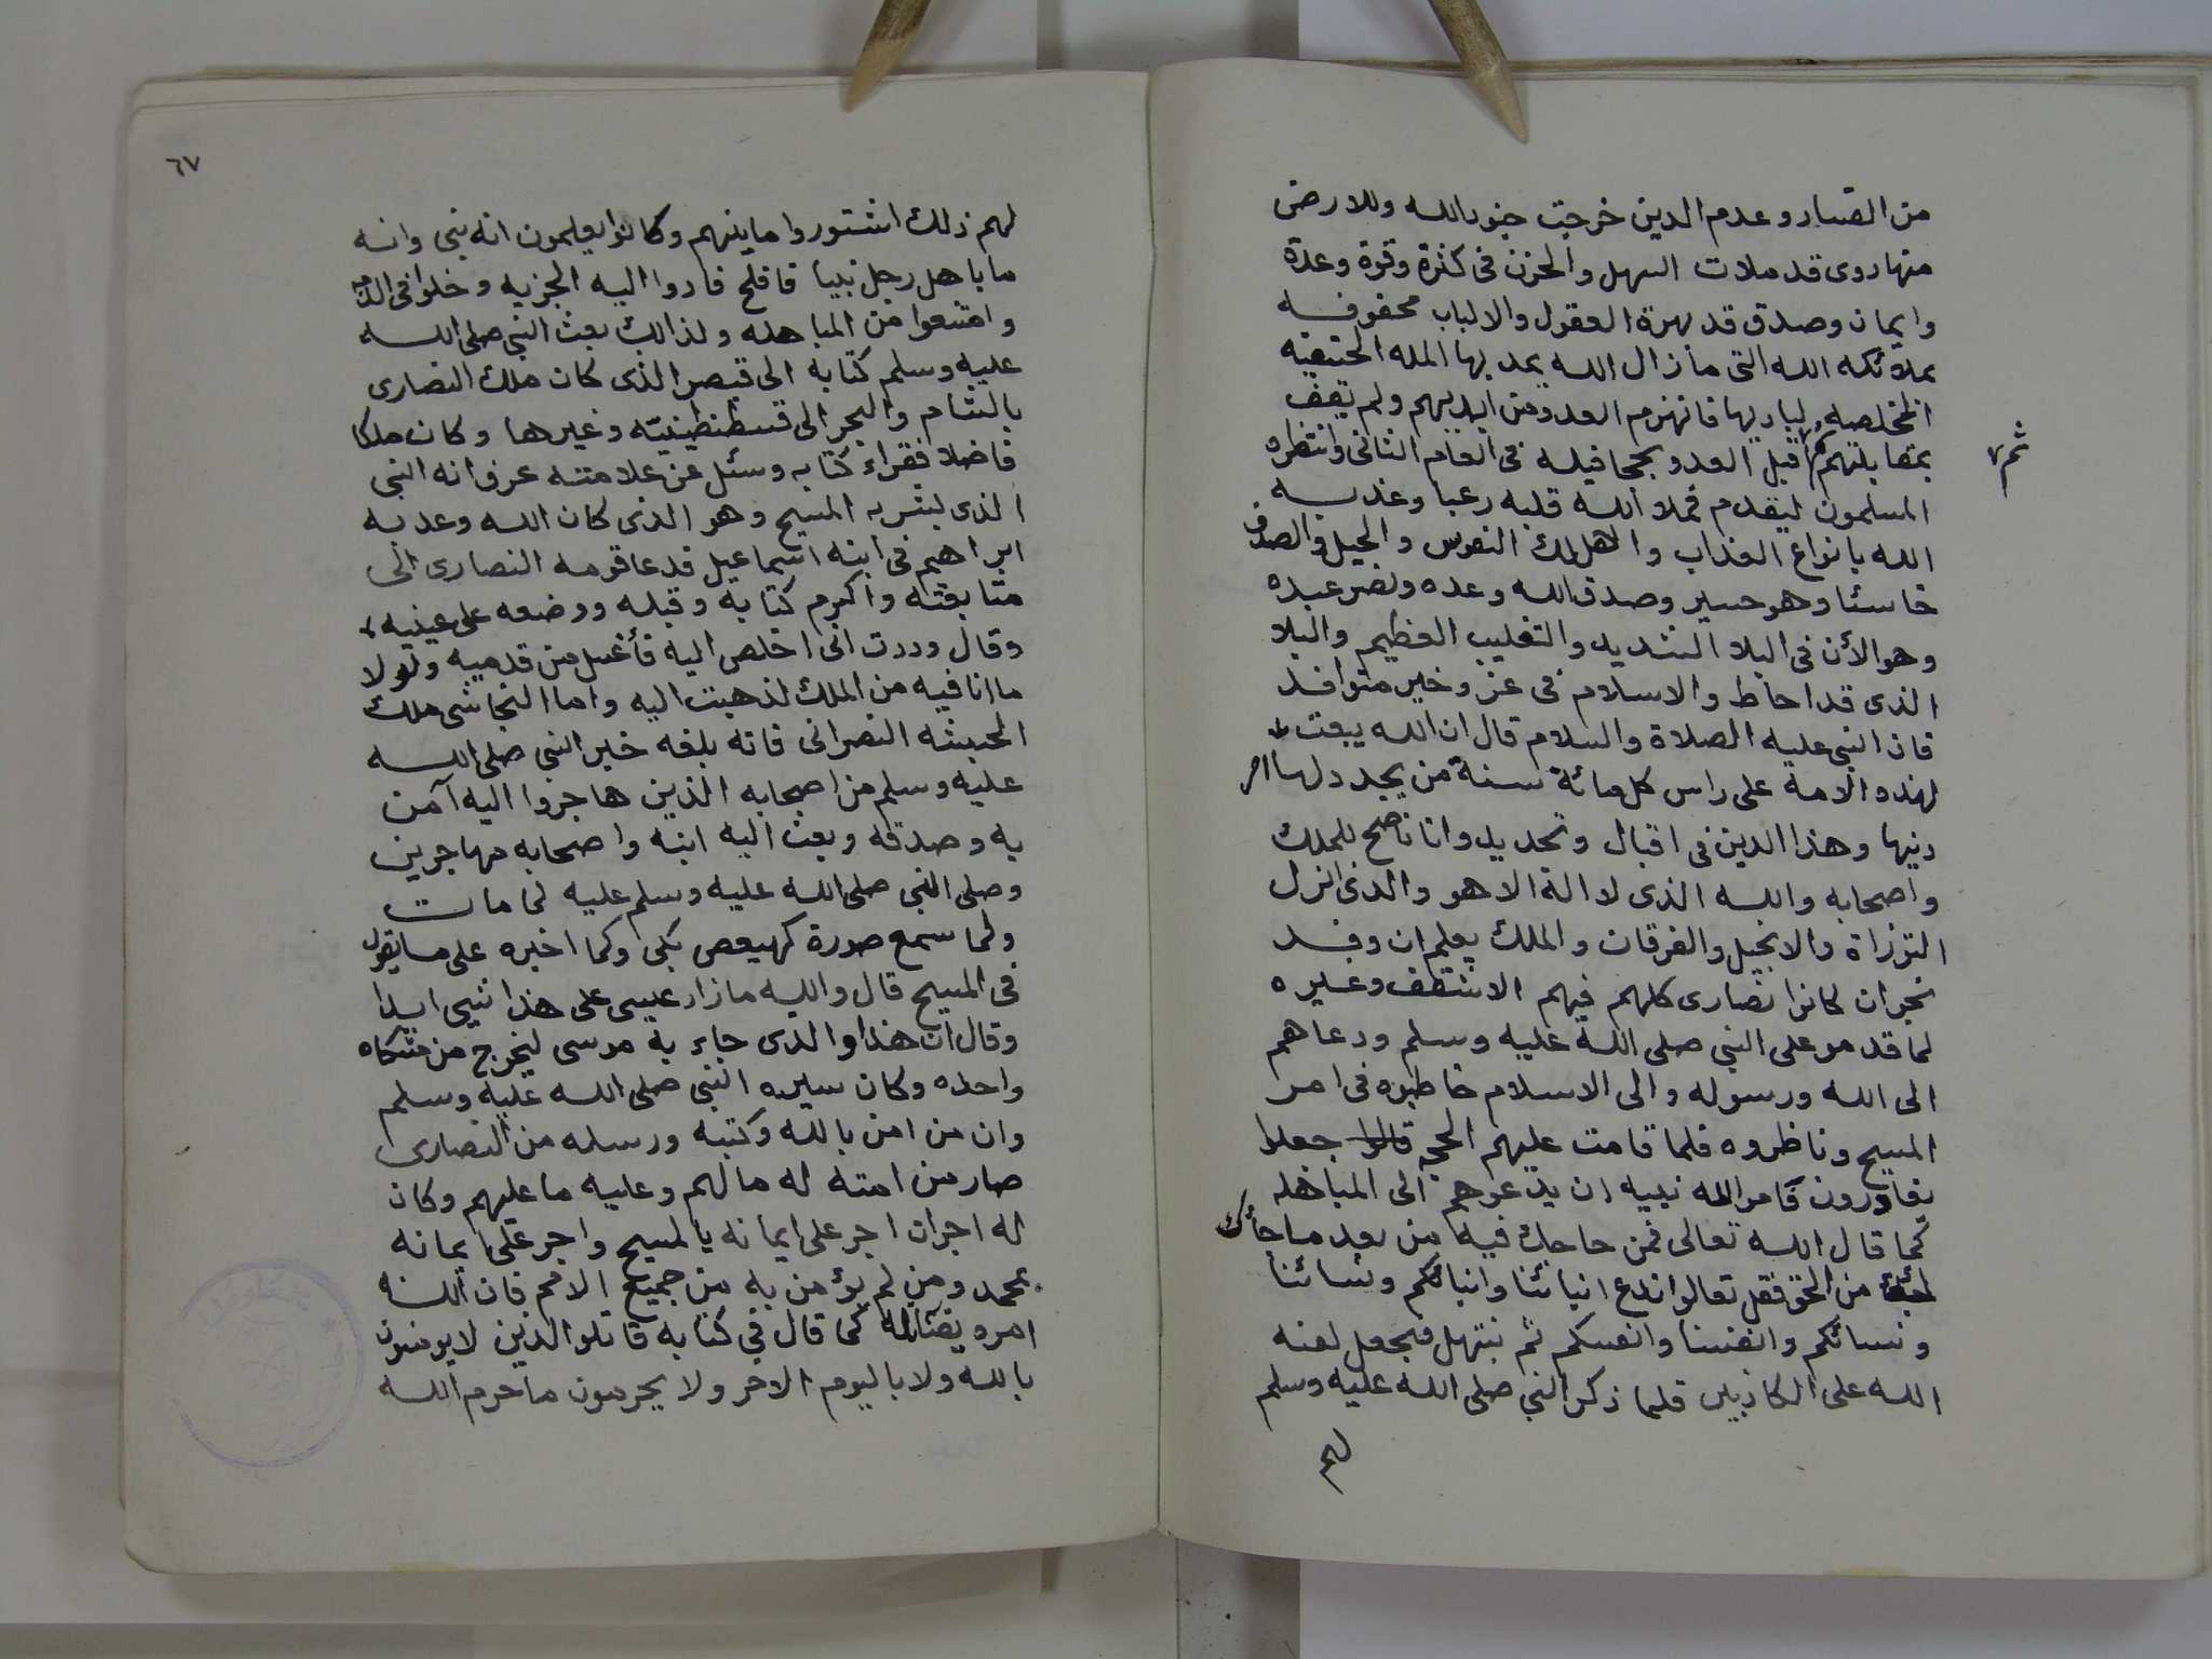 من الفساد وعدم الدين خرجت جنود الله وللارض
منها دوى قد ملات السهل والحزن فى كثرة وقوة وعدة
وايمان وصدق قد بهرة العقول والالباب محفوفه
بملائكه الله التى ما زال الله يمد بها المله الحنيفيه
المخلصه لباريها فانهزم العدو من ايديهم ولم تقف
بمقابلتهم ثم اقبل العدو بججافيله فى العام الثانى وانتظره
المسلمون ليقدم فملا الله قلبه رعبا وعذبه
الله بانواع العذاب واهلك النفوس والخيل وانصرف
خاسئا وهو حسير وصدق الله وعده ونصر عبده
وهو الأن فى البلا الشديد والتغليب العظيم والبلا
الذى قد احاط والاسلام فى عز وخير متوافد
فان النبى عليه الصلاة والسلام قال ان الله يبعت
لهذه الامة على راس كل مائة سنة من يجدد لها امر
دنيها وهذا الدين فى اقبال وتجديد وانا ناصح للملك
واصحابه والله الذى لا اله الا هو والذى انزل
التوراة والانجيل والفرقان والملك يعلم ان وفد
نجران كانوا نصارى كلهم فيهم الاشقف وغيره
لما قدمو على النبى صلى الله عليه وسلم ودعاهم
الى الله ورسوله والى الاسلام خاطبوه فى امر
المسيح وناظروه فلما قامت عليهم الحجه قالوا جعلوا
يفاورون فامر الله نبيه ان يدعوهم الى المباهله
كما قال الله تعالى فمن حاجك فيه من بعد ما جائك
من الحق فقل تعالوا ندع ابنائنا وابنائكم ونسائنا
ونسائكم وانفسنا وانفسكم ثم نبتهل فيجعل لعنه
الله على الكاذبين فلما ذكر النبى صلى الله عليه وسلم
لهم
ثم
٦٧
لهم ذلك اشتوروا ما بينهم وكانوا يعلمون انه نبى وانه
ما باهل رجل نبيا فافلح فادوا اليه الجزيه ودخلوا فى الذمه
وامتنعوا من المباهله ولذالك بعث النبى صلى الله
عليه وسلم كتابه الى قيصر الذى كان ملك النصارى
بالشام والبحر الى قسطنطينيّه وغيرها وكان ملكا
فاضلا فقراء كتابه وسئل عن علامته عرف انه النبى
الذى بشر به المسيح وهو الذى كان الله وعد به
ابراهيم فى ابنه اسماعيل فدعا قومه النصارى الى
متابعته واكرم كتابه وقبله ووضعه على عينيه
وقال وددت انى اخلص اليه فأغسل من قدميه ولولا
ما انا فيه من الملك لذهبت اليه واما النجاشى ملك
الحبشه النصرانى فانه بلغه خبر النبى صلى الله
عليه وسلم من اصحابه الذين هاجروا اليه آمن
به وصدقه وبعث اليه ابنه واصحابه مهاجرين
وصلى النبى صلى الله عليه وسلم عليه لما مات
ولما سمع صورة كهيعص بكى وكما اخبره على ما يقول
فى المسيح قال والله ما زاد عيسى على هذا شيئ ابدا
وقال ان هذا والذى جاء به موسى ليخرج من مشكاه
واحده وكان سيره النبى صلى الله عليه وسلم
وان من امن بالله وكتبه ورسله من النصارى
صار من امته له ما لهم وعليه ما عليهم وكان
له اجران اجر على ايمانه بالمسيح واجر على ايمانه
بمحمد ومن لم يؤمن به من جميع الامم فان الله
امر بقتاله كما قال فى كتابه قاتلوا الذين لا يومنون
بالله ولا باليوم الاخر ولا يحرمون ما حرم الله